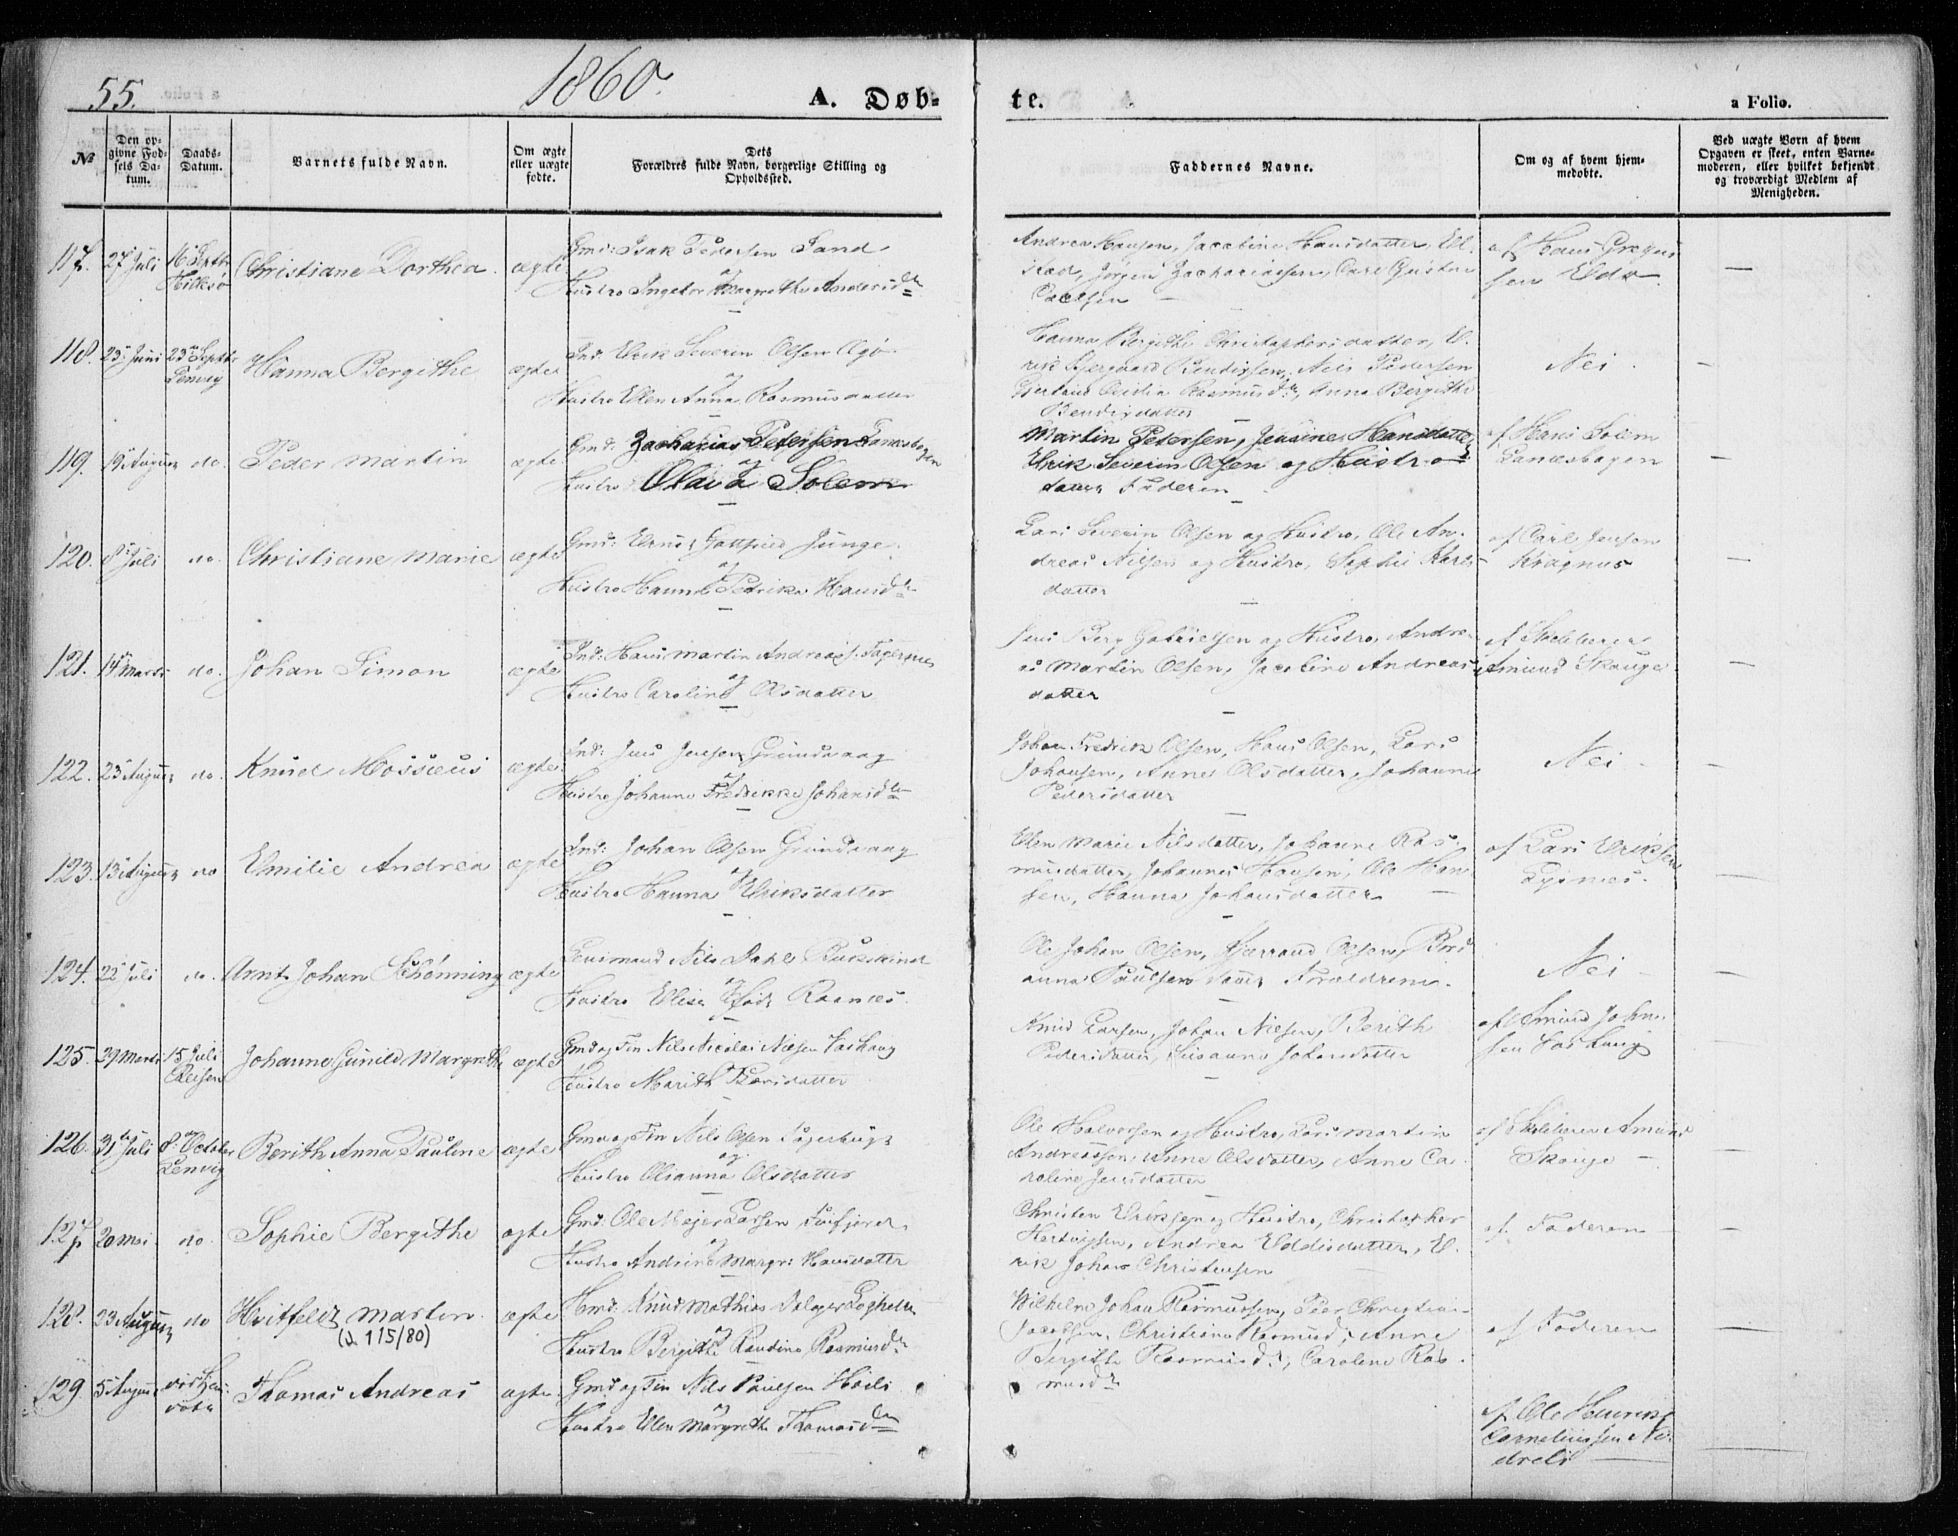 55.
1860.
A. Døb-
te.
a Folio.
№
Den op-
givne Fød-
sels Da-
tum.
Daabs-
Datum.
Barnets fulde Navn.
Om ægte
eller uægte
fødte.
Dets
Forældres fulde Navn, borgerlige Stilling og
Opholdssted.
Faddernes Navne.
Om og af hvem hjem-
medøbte.
Ved uægte Børn af hvem
Opgaven er skeet, enten Barne-
moderen, eller hvilket bekjendt
og troværdigt Medlem af
Menigheden.
117. 27 Juli 16 Septr Hillesø Christiane Dorthea ægte
Gmd: Isak Pedersen Sand
og
Hustro Ingebor Margrethe Andersdtr
Andrea Hansen, Jacobine Hansdatter,
Jørgen Zachariassen, Carl Gustav
af Hans Gregus
sen
118. 23 Juni 23 Septbr Lenvig Hanna Bergithe ægte
Ind: Elrik Severin Olsen
og
Hustro Ellen Anna Rasmusdatter
Hanna Bergithe Christophersdatter, El-
rik Bendigsen, Nils Pedersen
Rasmusdr, Anna Bergithe
Bendigsdatter
Nei
119. 19 August do. Peder Martin ægte
Gmd: Zacharias Pedersen Lanesbogen
og
Hustro Olava Solem
Martin Petersen, Jensine Hansdatter
Elrik Severin Olsen og Hustro
samt Faderen
af Hans Solem
Lanesbogen
120. 8 Juli do. Christiane Marie ægte
Gmd: Gottfried Junge
og
Hustro Hanna Pedrike Hansdr
Lars Severin Olsen og Hustro, Ole An-
dreas Nilsen og Hustro, Sophie Karls-
datter
af Carl Jensen
Kragnes
121. 14 Marts do. Johan Simon ægte
Ind: Hans Martin Andreas. Fagernes
og
Hustro Caroline Olsdatter
Jens Berg Gabrielsen og Hustro, Andre-
as Martin Olsen, Jacobine Andreas-
datter
af Skolelærer
Amund Skauge
122. 23 August do. Knud Mossæus ægte
Ind: Jens Jensen Grundvaag
og
Hustro Johanne Fredrikke Johansdtr
Johan Fredrik Olsen, Hans Olsen, Lars
Johansen, Anne Olsdatter, Johanne
Pedersdatter
Nei
123. 13 August do Emilie Andrea ægte
Ind: Johan Olsen Grundvaag
og
Hustro Hanna Elriksdatter
Ellen Marie Nilsdatter, Johanne Ras-
musdatter, Johannes Hansen, Ole Han-
sen, Hanna Johansdatter
af Lars Elriksen
Lysnes.
124. 22 Juli do. Arnt Johan Schønning ægte
Nils Dahl
og
Hustro Elise født Raanes.
Ole Johan Olsen, Olsen,
anna Paulsen samt Forældrene.
Nei
125. 29 Marts 15 Juli Reisen Johanne Gunild Margrethe ægte
Gmd og Fin Nils Nicolai Nilsen
Hustro Marith Larsdatter
Knud Larsen, Johan Nilsen, Berith
Pedersdatter, Susanna Johansdatter
af Amund Johan-
sen
126. 31 Juli 8 October Lenvig Berith Anna Pauline ægte
Gmd og Fin Nils Olsen
og
Hustro Olianna Olsdatter
Ole Halvorsen og Hustro, Lars Martin
Andreassen, Anne Olsdatter, Anne Ca-
roline Jensdatter
af Skolelærer Amund
Skauge
127. 20 Mai do. Sophie Bergithe ægte
Gmd: Ole Mejer Larsen
og
Hustro Andrine Margr: Hansdatter
Christen Elriksen og Hustro, Christopher
Hertvigsen, Andrea Eddisdatter, El-
rik Johan Christensen
af Faderen
128. 23 August do Hvitfeldt Martin ægte
(d. 115/80)
Knud Mathias
og
Hustro Bergithe Randine Rasmusdr
Wilhelm Johan Rasmussen, Peer Christian
Jacobsen, Christiane Rasmusdr, Anne
Bergithe Rasmusdr, Caroline Ras-
musdr
af Faderen
129. 5 August Thomas Andreas ægte
Gmd og Fin Nils Paulsen
og
Hustro Ellen Margrethe Thomasdtr
af Ole Henrik
Corneliussen